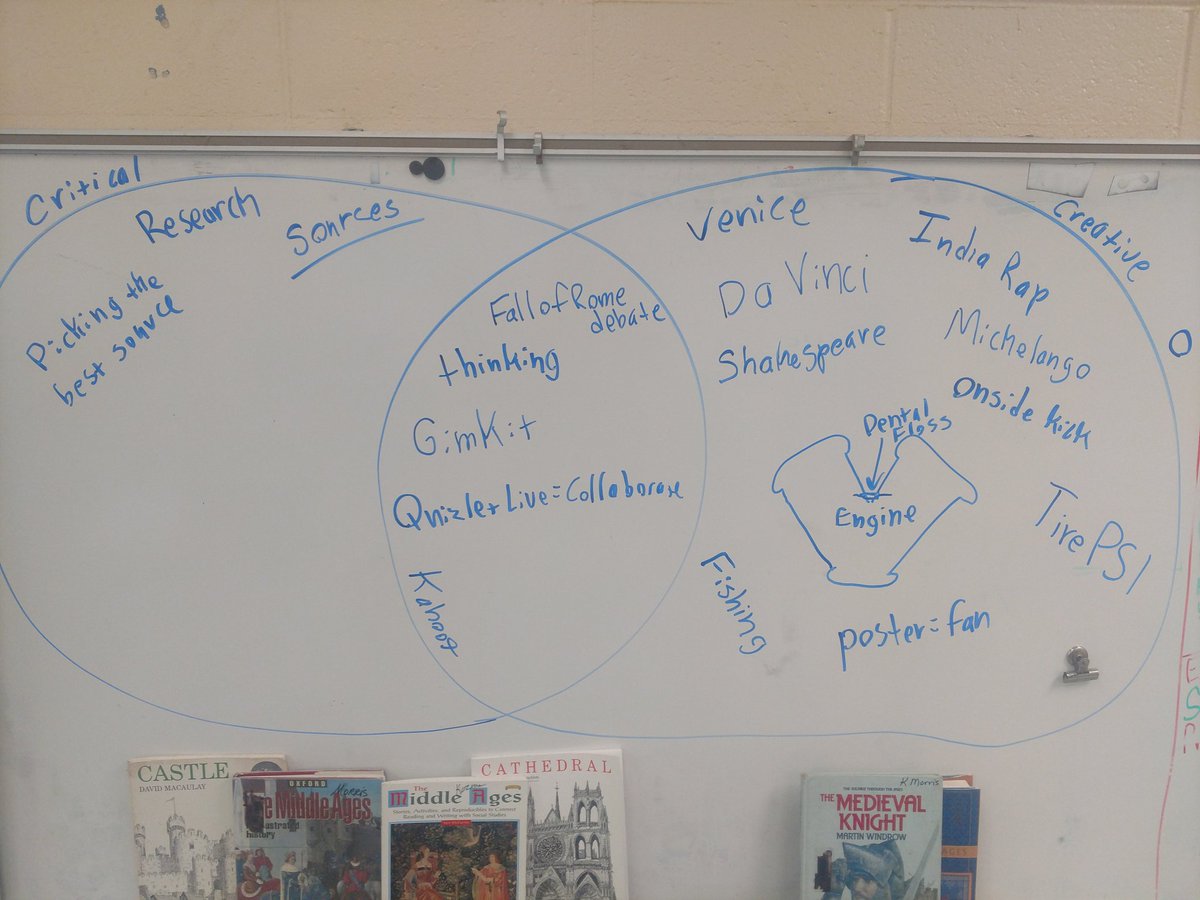 Critical
Research
Sources
Picking the
best source
Fall of Rome
debate
thinking
GimKit
Quizlet Live = Collaborate
Kahoot
Creative
Venice
India Rap
Da Vinci
Michelango
Shakespeare
Onside kick
Dental
Floss
Engine
Tire PSI
Fishing
poster = fan
O
CASTLE
DAVID MACAULAY
OXFORD
Morris
The Middle Ages
illustrated
history
The
Middle Ages
Stories, Activities, and Reproducibles to Connect
Reading and Writing with Social Studies
CATHEDRAL
K. Morris
THE SOLDIER THROUGH THE AGES
THE
MEDIEVAL
KNIGHT
MARTIN WINDROW
AGES